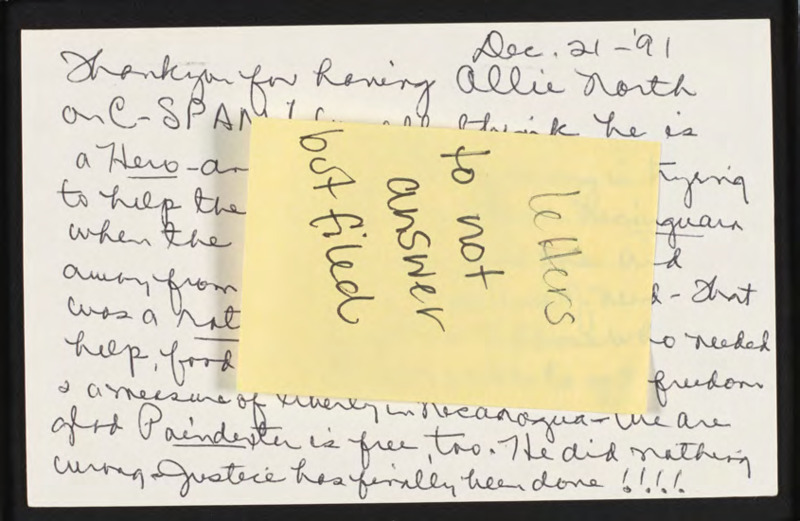 Dec. 21-'91
Thankyou for having Ollie North
on C-SPAN think he is
a Hero-an trying
to help the
when the d
away from d-that
was a o needed
help, food freedom
& a measure of liberty in Nicaragua-We are
glad Paindexter is free, too. He did nothing
wrong-Justice has finally been done !!!!
letters
to not
answer
but filed